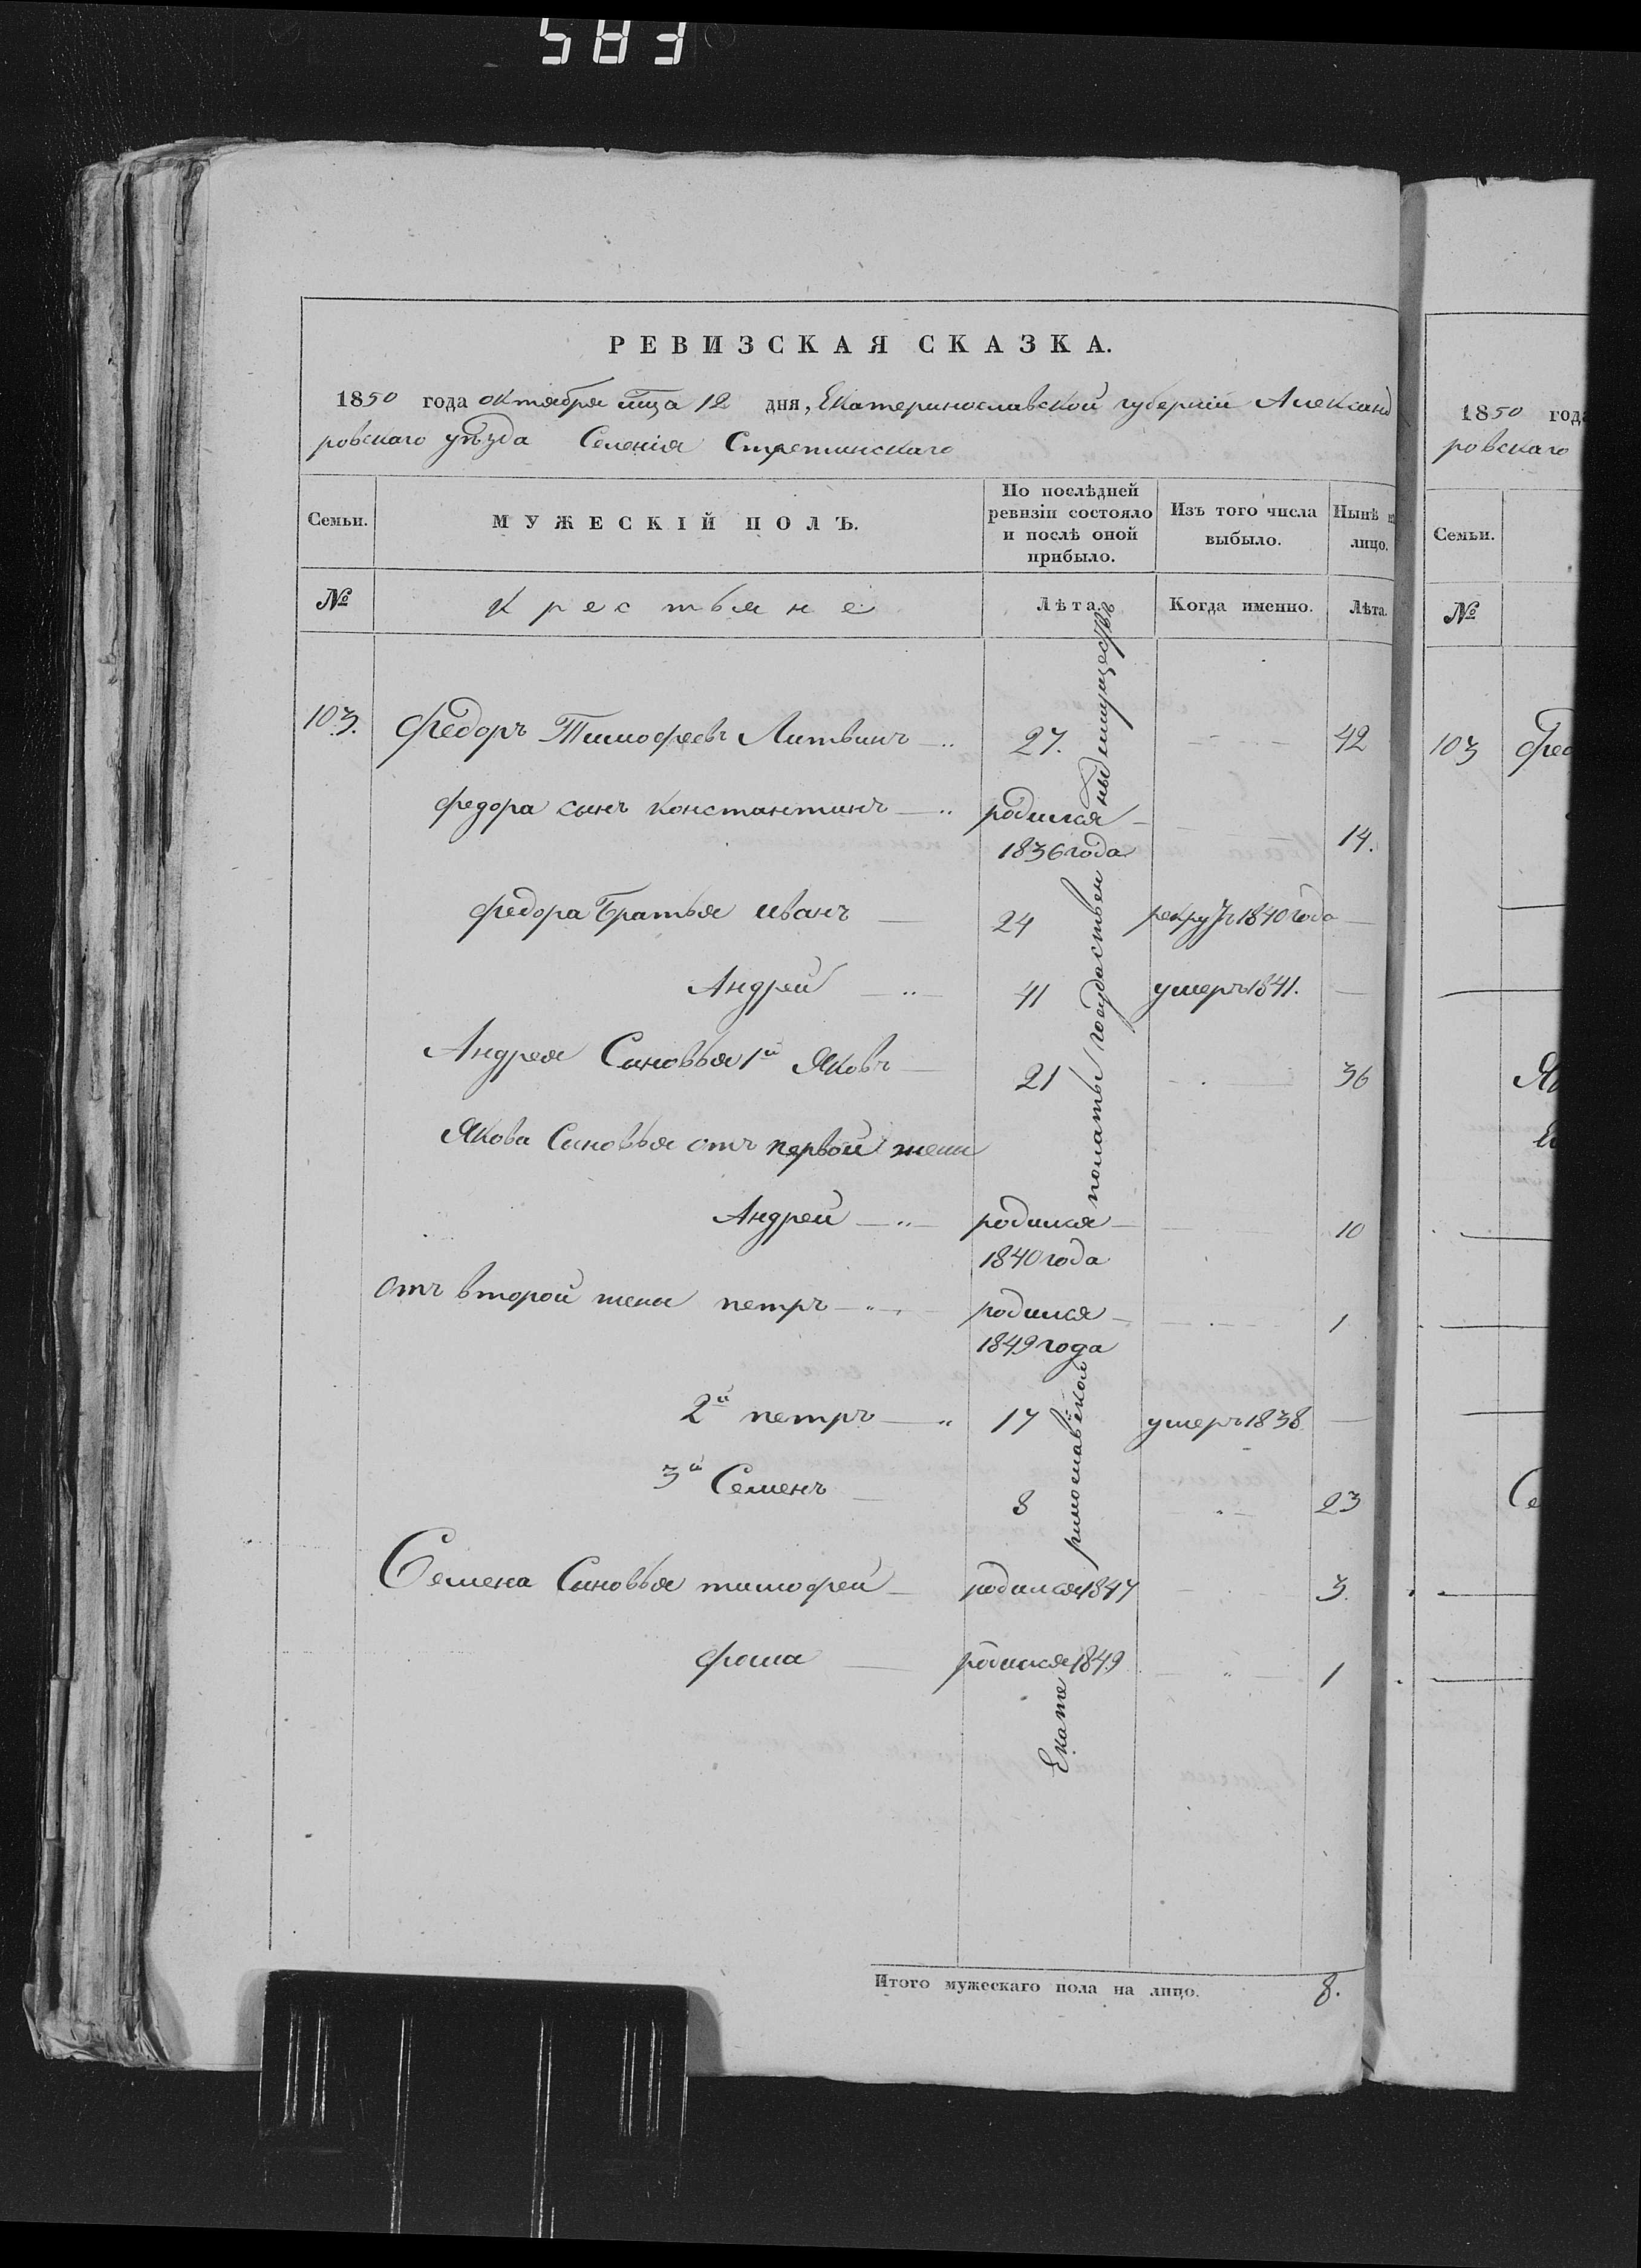 583
РЕВИЗСКАЯ СКАЗКА.
1850 года октября мца 12 дня, Екатеринославской губерніи Александ
ровскаго уѣзда Селенія Стретинскаго
Семьи.
МУЖЕСКІЙ ПОЛЪ.
По послѣдней ревизіи состояло и послѣ оной прибыло.
Изъ того числа выбыло.
Нынѣ на лицо.
№
Крестьяне
Лѣта.
Когда именно.
Лѣта.
103. Федоръ Тимофеевъ Литвинъ 27. 42
федора сынъ константинъ родился 14.
1836 года
федора Братья иванъ 24 рекрут 1840 года
Андрей 41 умеръ 1841.
Андрея Сыновья 1й Яковъ 21 36
Якова Сыновья отъ первой жены
Андрей родился 10
1840 года
отъ второй жены петръ родился 1
1849 года
2й петръ 17 умеръ 1838
3й Семенъ 8 23
Семена Сыновья тимофей родился 1847 3.
фома родился 1849 1
Екате риносла<wbr>вской палаты государствен ныхъ имуществъ
Итого мужескаго пола на лицо. 8.
1850 года
ровскаго
Семьи.
№
103 Фед
Як
Се